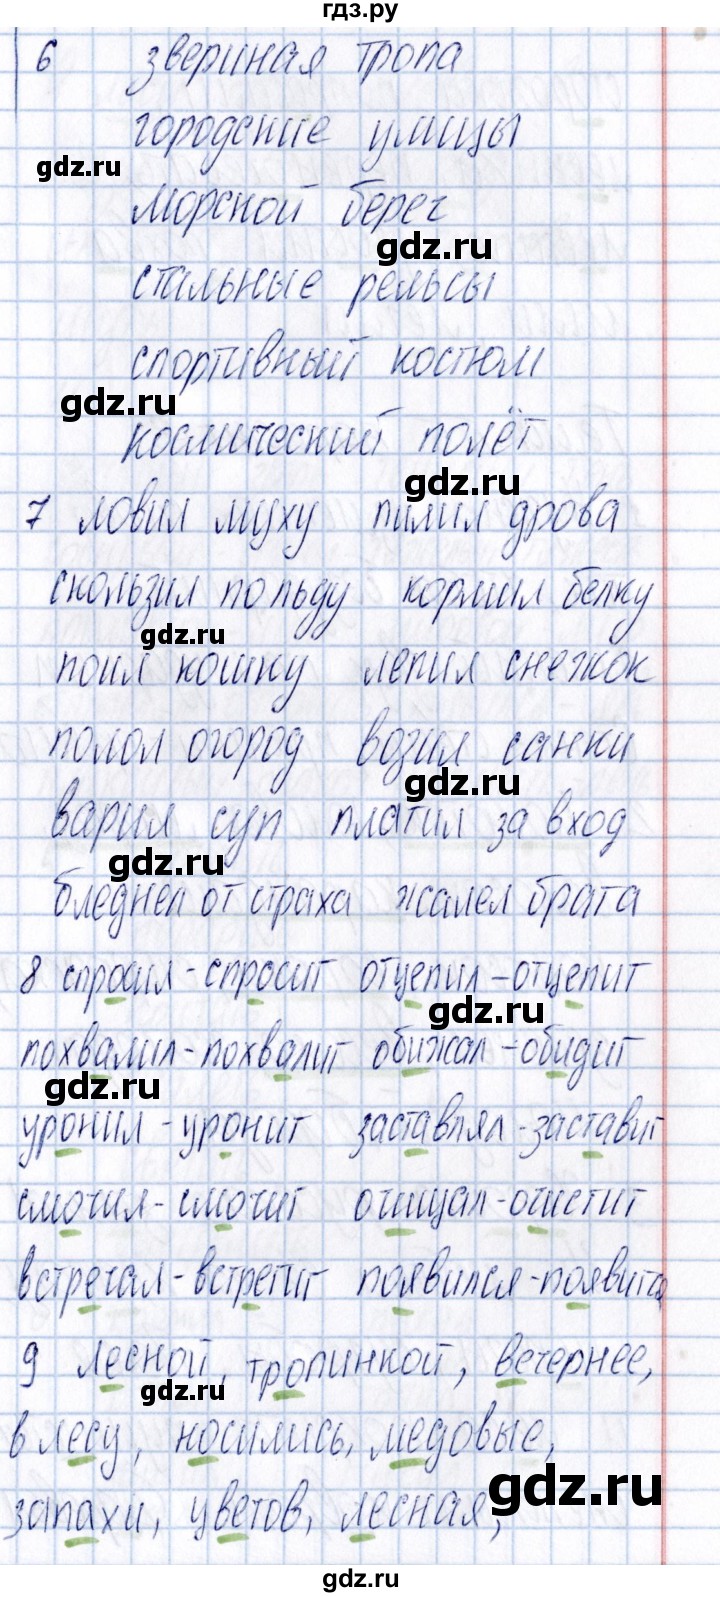 гдз.ру
6 звериная тропа
городские улицы
gdz.ru
морской берег
gdz.ru
стальные рельсы
спортивный костюм
gdz.ru
космический полёт
gdz.ru
7 ловил муху пилил дрова
скользил по льду кормил белку
gdz.ru
поил кошку лепил снежок
полол огород возил санки
gdz.ru
варил суп платил за вход
gdz.ru
бледнел от страха жалел брата
8 спросил-спросит отцепил-отцепит
gdz.ru
похвалил-похвалит обижал-обидит
gdz.ru
уронил-уронит заставлял-заставит
смочил-смочит очищал-очистит
встречал-встретит появился-появится
9 лесной, тропинкой, вечернее,
gdz.ru
в лесу, носились, медовые,
gdz.ru
запахи, цветов, лесная,
gdz.ru